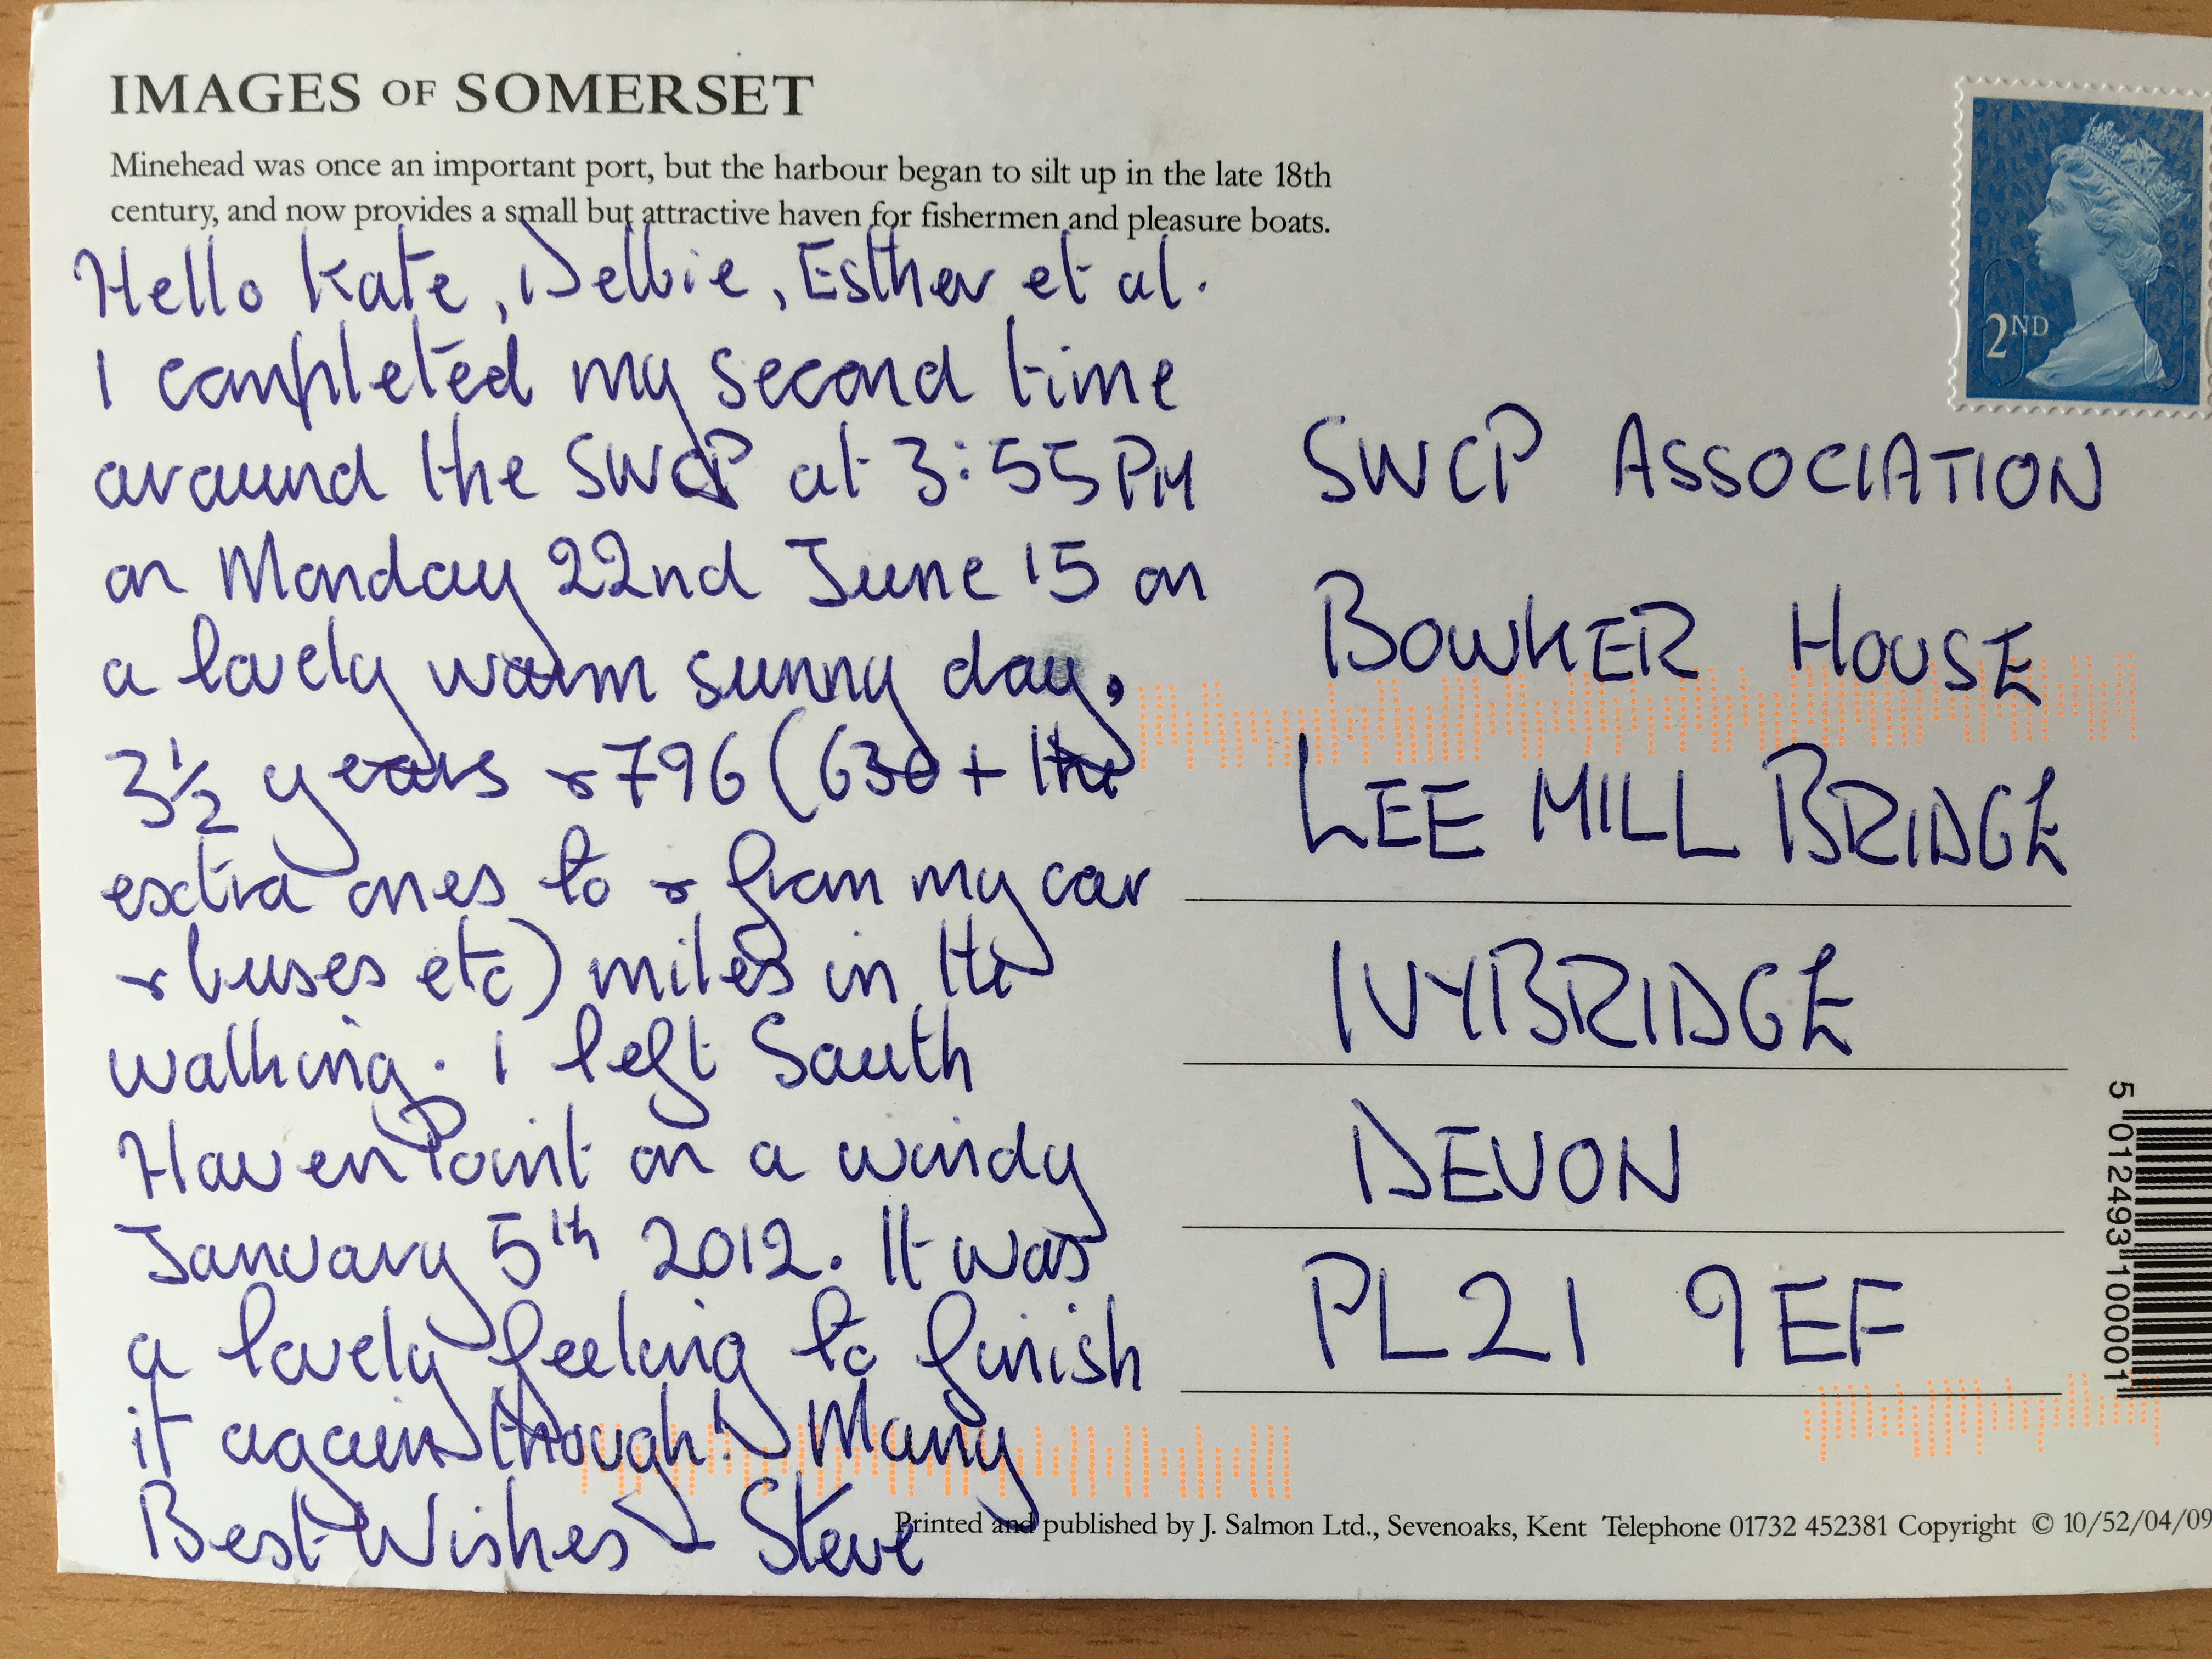 IMAGES OF SOMERSET
Minehead was once an important port, but the harbour began to silt up in the late 18th
century, and now provides a small but attractive haven for fishermen and pleasure boats.
Hello Kate, Debbie, Esther et al.
I completed my second time
around the SWCP at 3:55PM
on Monday 22nd June 15 on
a lovely warm sunny day.
3½ years & 796 (630 + the
extra ones to & from my car
& buses etc) miles in the
walking. I left South
Haven Point on a windy
January 5th 2012. It was
a lovely feeling to finish
it again though! Many
Best Wishes - Steve
2ND
SWCP ASSOCIATION
BOWKER HOUSE
LEE MILL BRIDGE
IVYBRIDGE
DEVON
PL21 9EF
5 012493 100001
Printed and published by J. Salmon Ltd., Sevenoaks, Kent Telephone 01732 452381 Copyright © 10/52/04/09